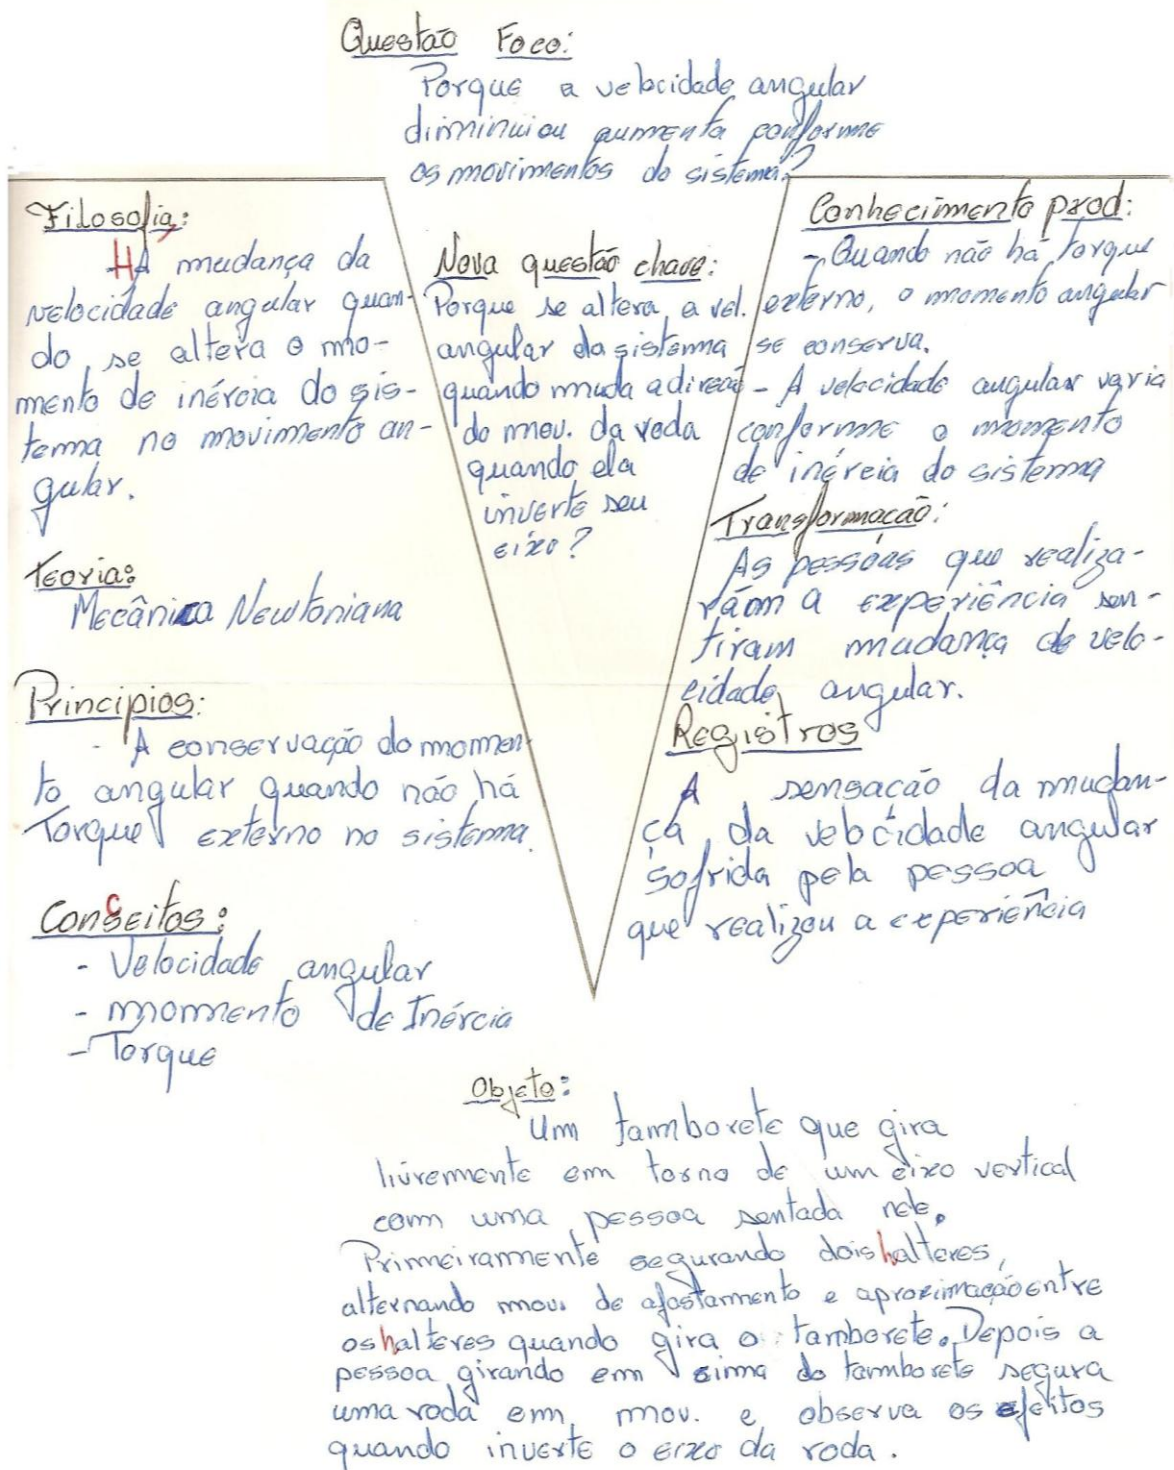 Questão Foco:
Porque a velocidade angular
diminui ou aumenta conforme
os movimentos do sistema?
Filosofia:
HÁ mudança da
velocidade angular quan-
do se altera o mo-
mento de inércia do sis-
tema no movimento an-
gular.
Teoria:
Mecânica Newtoniana
Principios:
- A conservação do momen
to angular quando não há
Torque externo no sistema.
Conceitos:
- Velocidade angular
- momento de Inércia
- Torque
Nova questão chave:
Porque se altera a vel.
angular da sistema
quando muda a direcão
do mov. da roda
quando ela
inverte seu
eixo?
Conhecimento prod:
- Quando não há Torque
externo, o momento angular
se conserva.
- A velocidade angular varia
conforme o momento
de inércia do sistema
Transformação:
As pessoas que realiza-
rãom a experiência sen-
tiram mudança de velo-
cidade angular.
Registros
A sensação da mudan-
ça da velocidade angular
sofrida pela pessoa
que realizou a experiência
Objeto:
Um tamborete que gira
livremente em torno de um eixo vertical
com uma pessoa sentada nele.
Primeiramente segurando dois halteres,
alternando mov. de afastamento e aproximação entre
os halteres quando gira o tamborete. Depois a
pessoa girando em cima do tamborete segura
uma roda em mov. e observa os efeitos
quando inverte o eixo da roda.